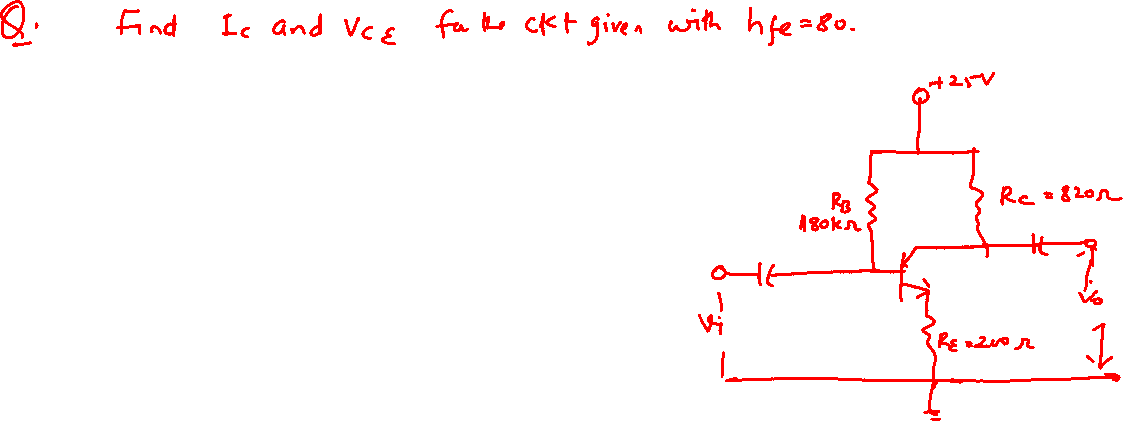 Q. Find Ic and VCE for the ckt given with hfe=80.
+25V
RB
180kΩ
Rc = 820Ω
Vi
Vo
RE = 200Ω